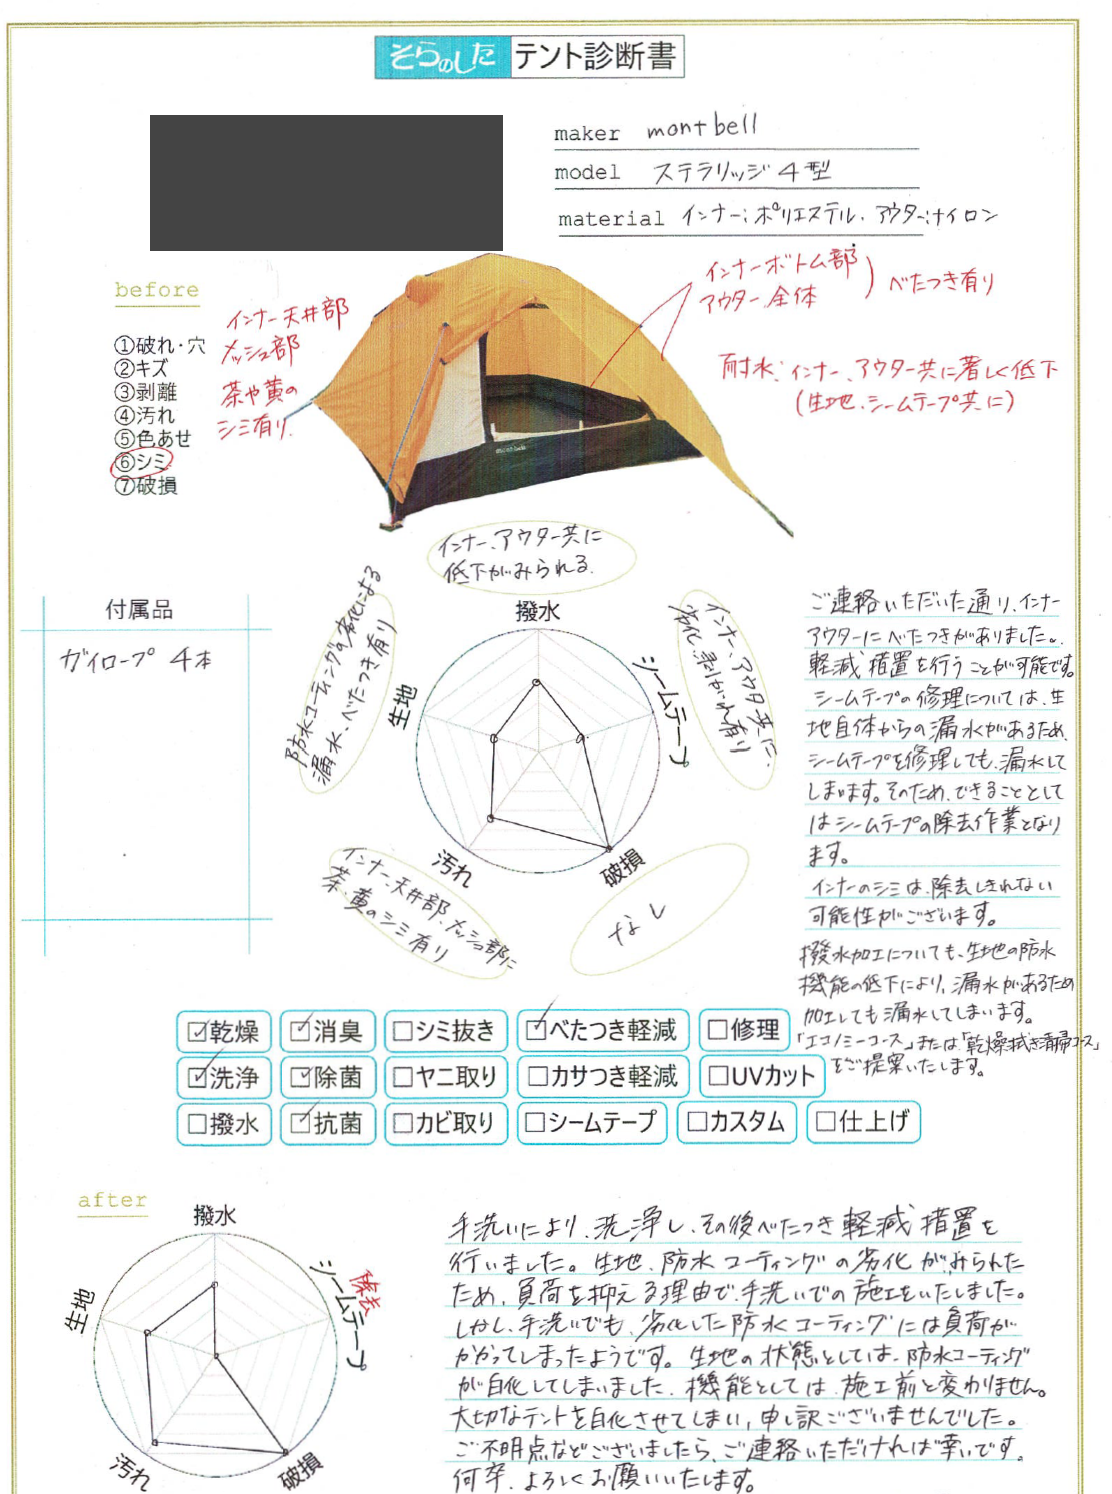 そらのした テント診断書
maker montbell
model ステラリッジ 4型
material インナー:ポリエステル、アウター:ナイロン
before
①破れ・穴
②キズ
③剥離
④汚れ
⑤色あせ
⑥シミ
⑦破損
インナー天井部
メッシュ部
茶や黄の
シミ有り.
インナーボトム部
アウター全体
べたつき有り
耐水:インナー、アウター共に著しく低下
(生地、シームテープ共に)
montbell
付属品
ガイロープ 4本
インナー、アウター共に
低下がみられる.
撥水
シームテープ
インナー、アウター共に、
劣化、剥がれ有り
破損
なし
汚れ
インナー天井部、メッシュ部に
茶・黄のシミ有り
生地
防水コーティングの劣化による
漏水、べたつき有り
ご連絡いただいた通り、インナー
アウターにべたつきがありました。
軽減措置を行うことが可能です。
シームテープの修理については、生
地自体からの漏水があるため、
シームテープを修理しても、漏水して
しまいます。そのため、できることとして
はシームテープの除去作業となり
ます。
インナーのシミは、除去しきれない
可能性がございます。
撥水加工についても、生地の防水
機能の低下により、漏水があるため
加工しても漏水してしまいます。
「エコノミーコース」または「乾燥拭き清掃コース」
をご提案いたします。
☑乾燥 ☑消臭 □シミ抜き ☑べたつき軽減 □修理
☑洗浄 ☑除菌 □ヤニ取り □カサつき軽減 □UVカット
□撥水 ☑抗菌 □カビ取り □シームテープ □カスタム □仕上げ
after
撥水
シームテープ
除去
破損
汚れ
生地
手洗いにより、洗浄し、その後べたつき軽減措置を
行いました。生地、防水コーティングの劣化がみられた
ため、負荷を抑える理由で、手洗いでの施工をいたしました。
しかし、手洗いでも、劣化した防水コーティングには負荷が
かかってしまったようです。生地の状態としては、防水コーティング
が白化してしまいました。機能としては、施工前と変わりません。
大切なテントを白化させてしまい、申し訳ございませんでした。
ご不明点などございましたら、ご連絡いただければ幸いです。
何卒、よろしくお願いいたします。